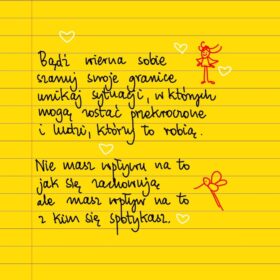 Bądź wierna sobie
szanuj swoje granice
unikaj sytuacji, w których
mogą zostać przekroczone
i ludzi, którzy to robią.
Nie masz wpływu na to
jak się zachowują
ale masz wpływ na to
z kim się spotykasz.